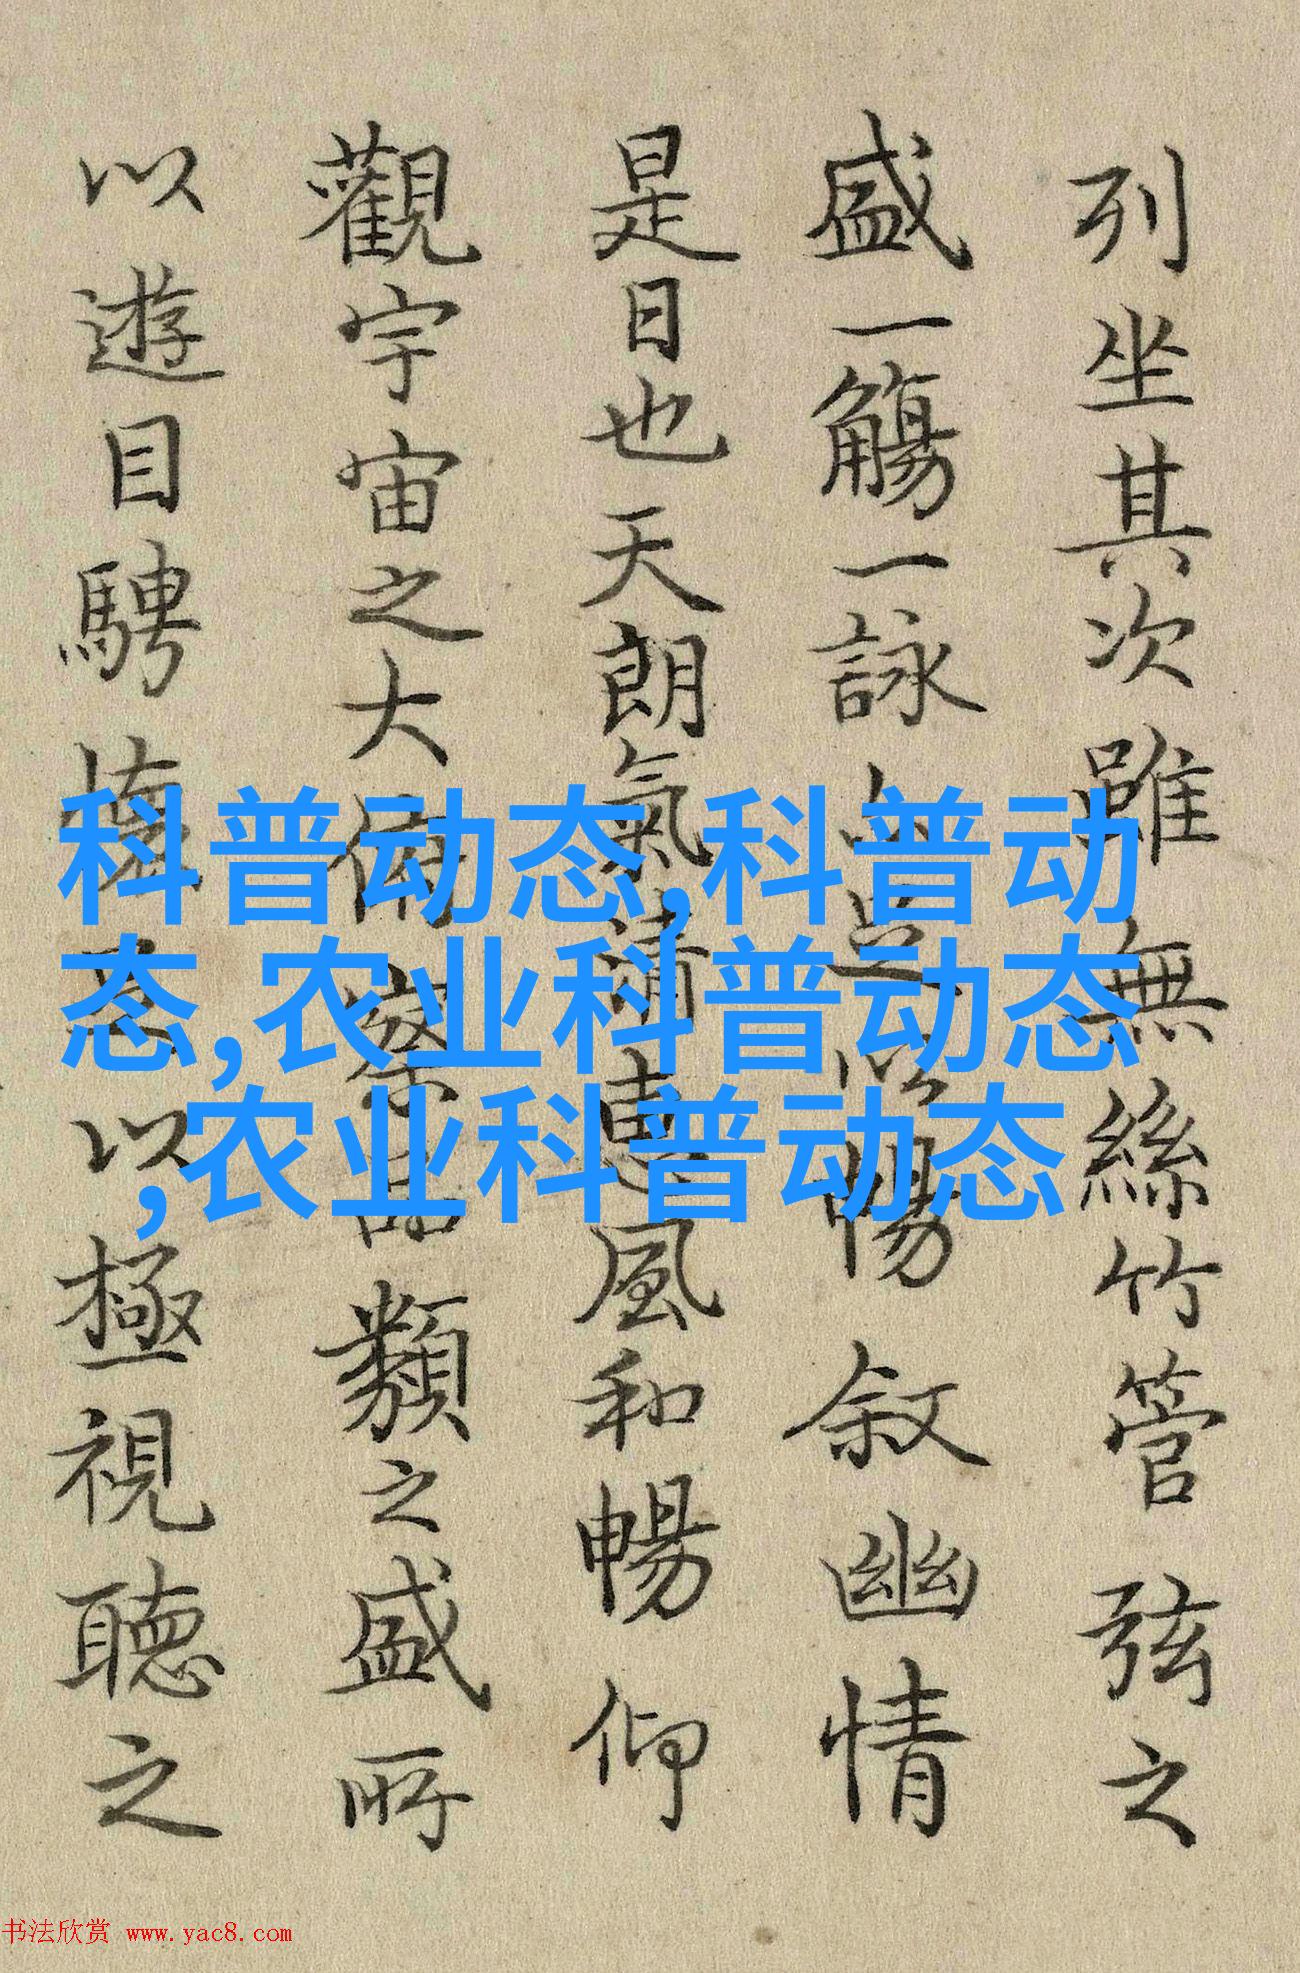 列坐其次雖無絲竹管弦之
盛一觴一詠亦足以暢叙幽情
是日也天朗氣清惠風和暢仰
觀宇宙之大俯察品類之盛所
以遊目騁懷足以極視聽之
科普动态,科普动
态,农业科普动态
,农业科普动态
书法欣赏 www.yac8.com